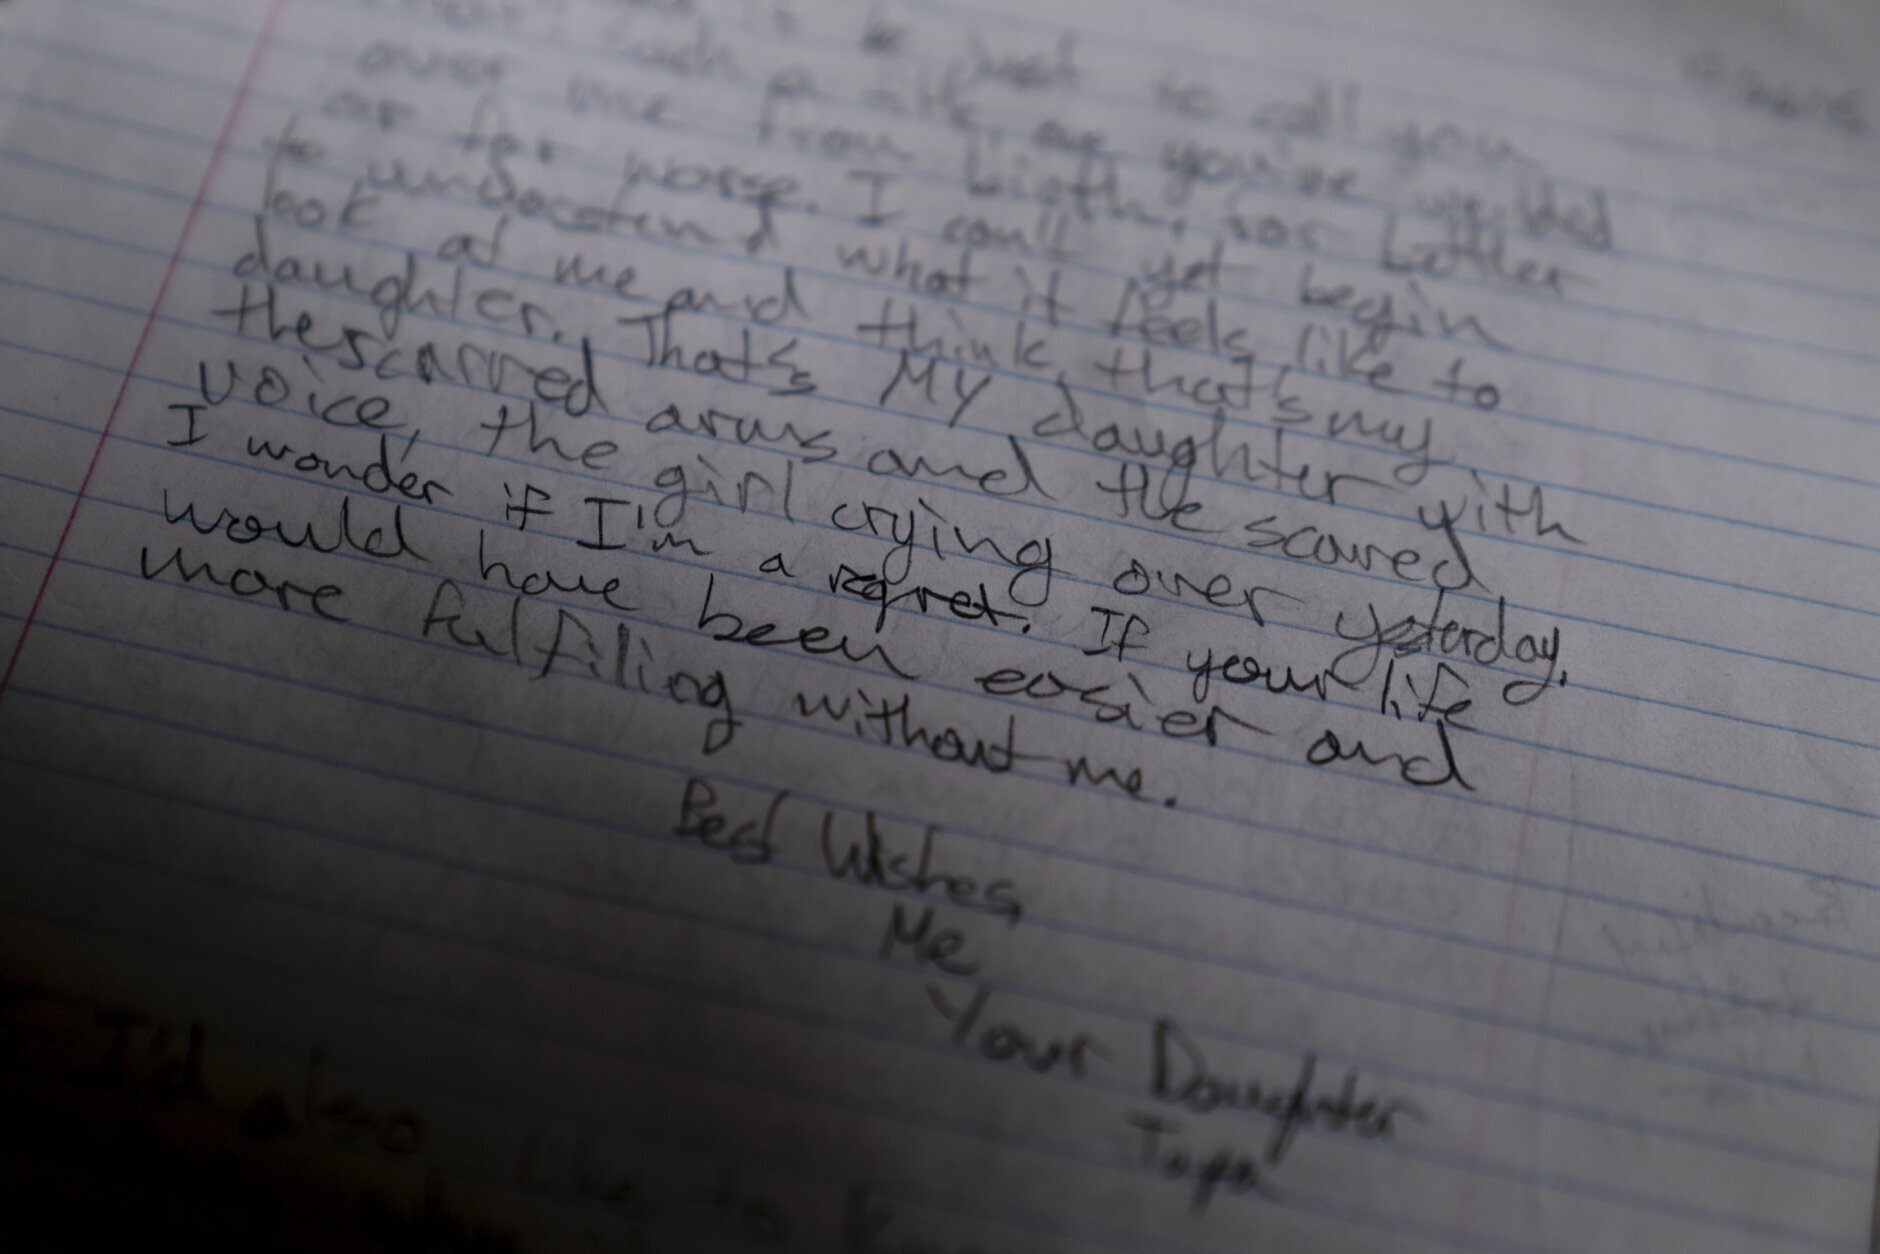 be just to call you
such a title, or you've wielded
over me from birth, for better
or for worse. I can't yet begin
to understand what it feels like to
look at me and think, that's my
daughter. That's MY daughter with
the scarred arms and the scared
voice, the girl crying over yesterday.
I wonder if I'm a regret. If your life
would have been easier and
more fulfiling without me.
Best Wishes,
Me
Your Daughter
I'd also like to